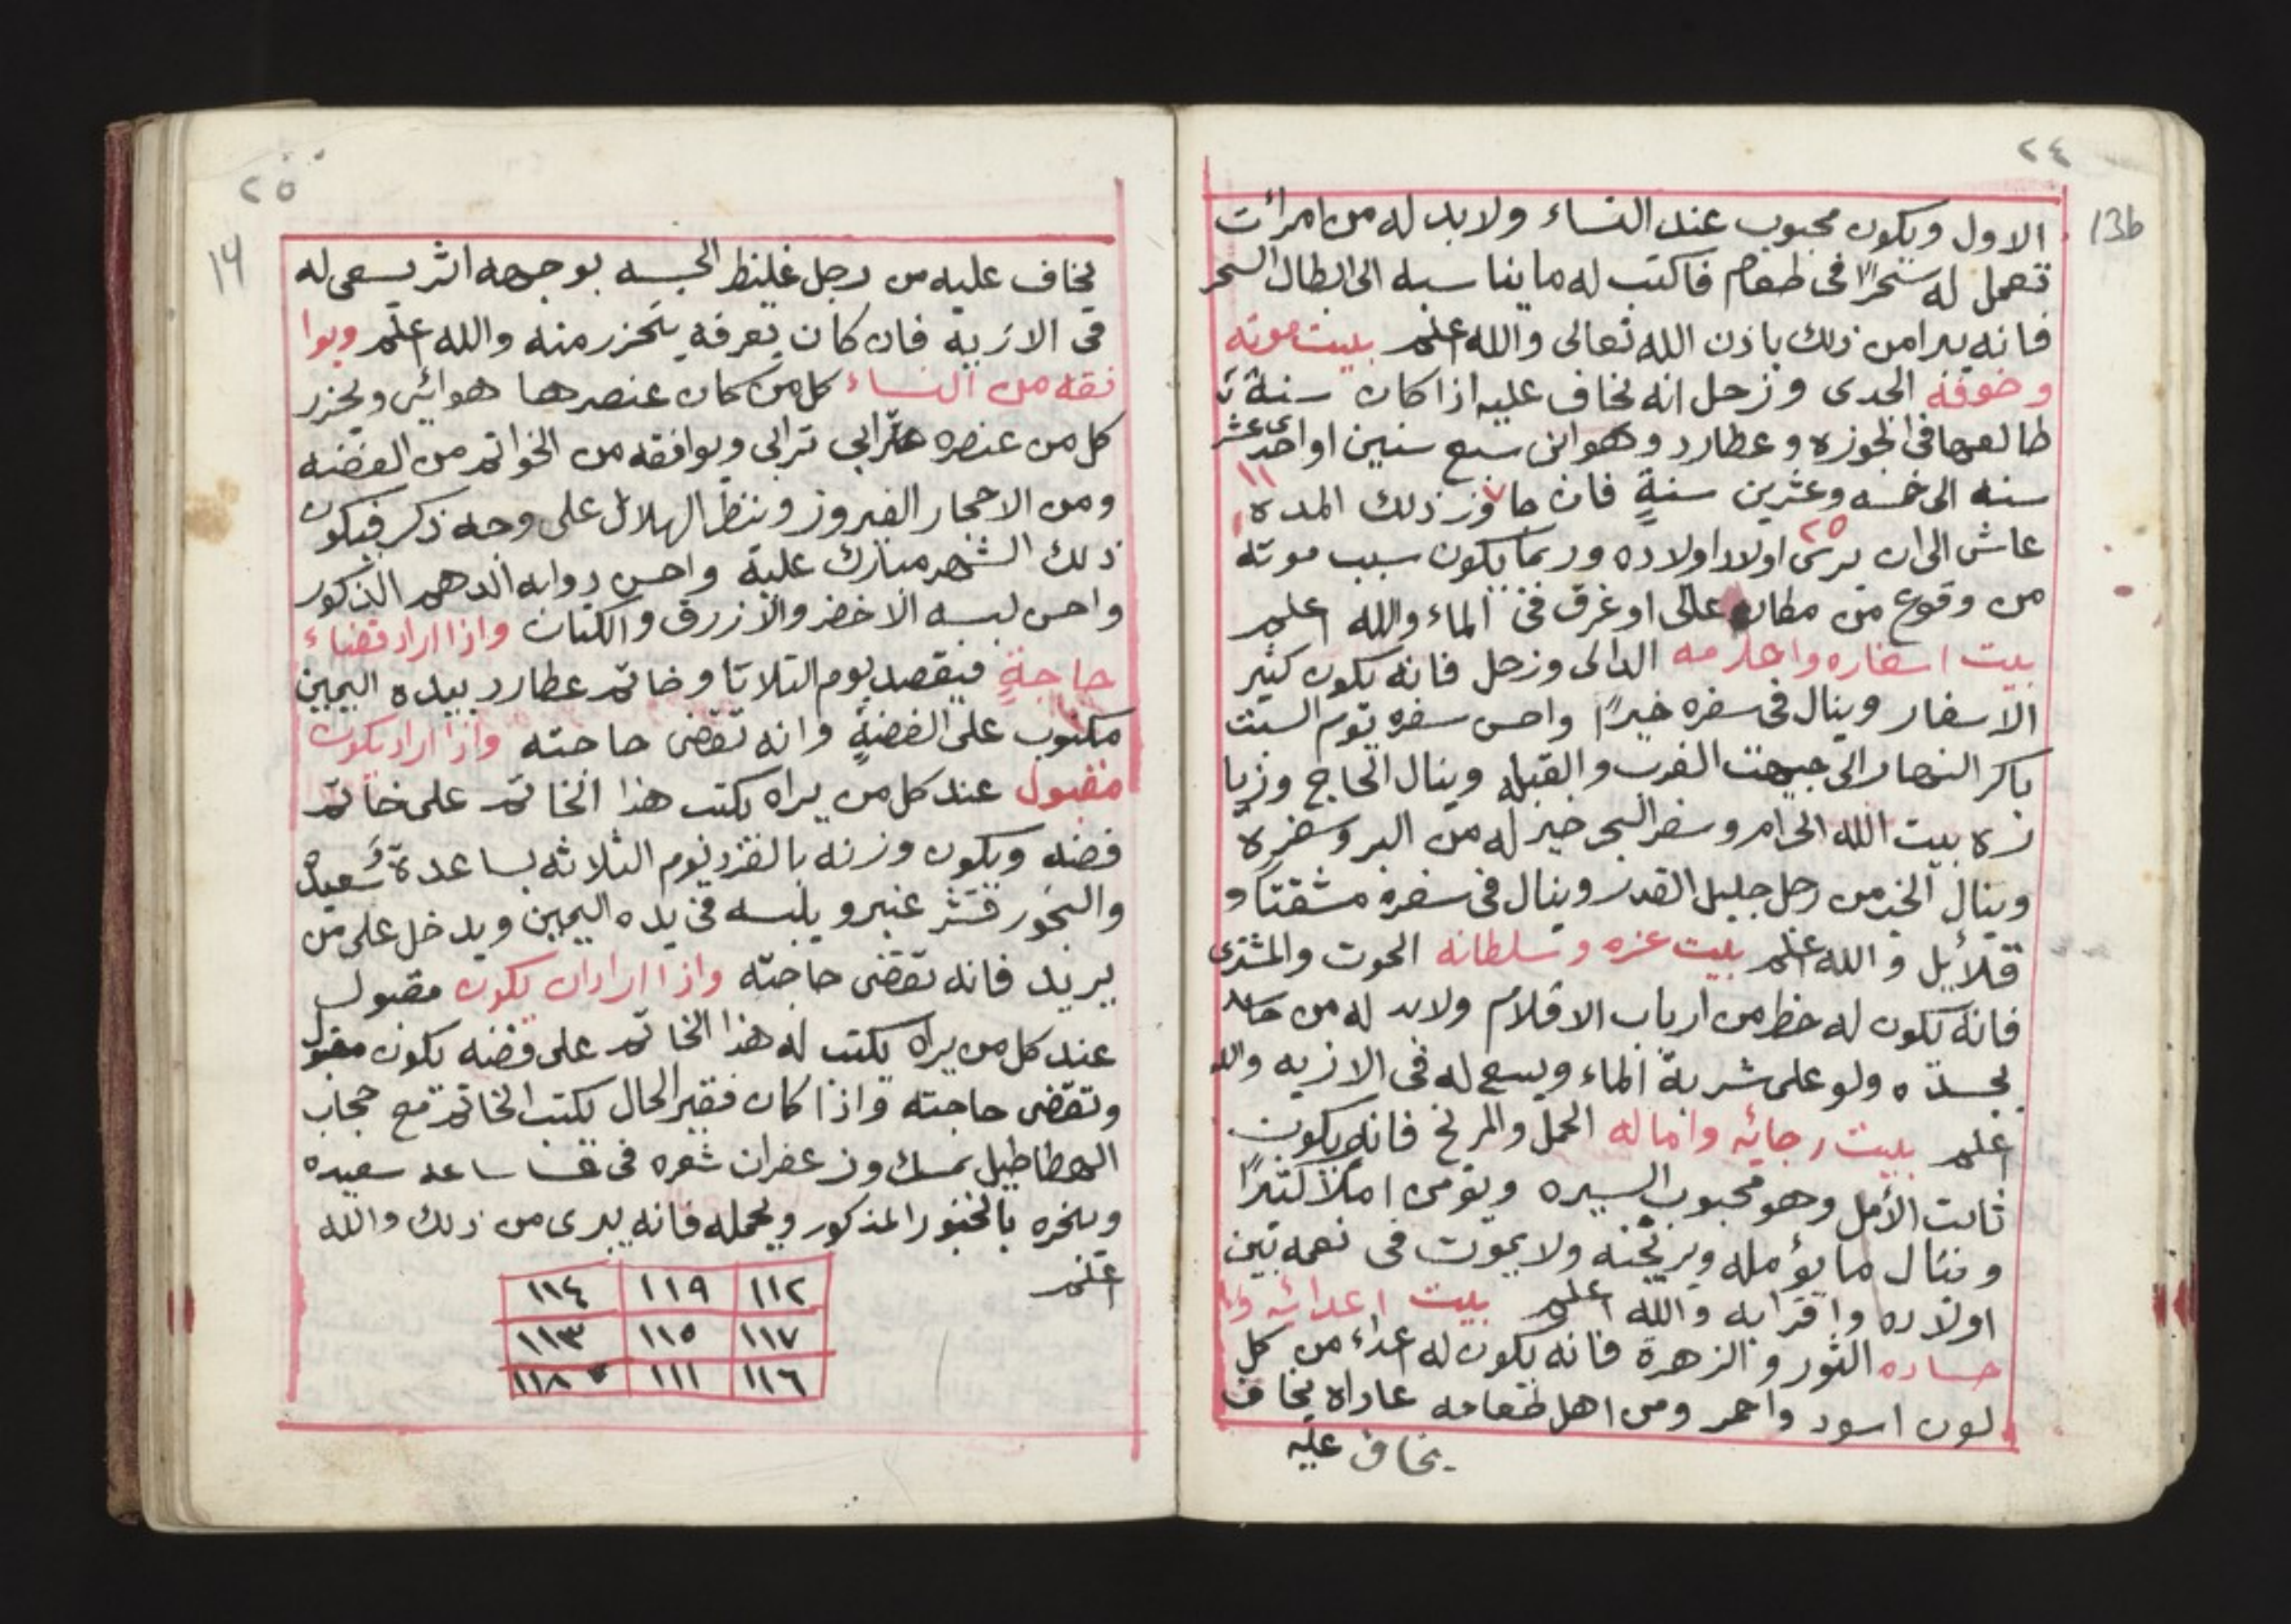 ٢٤
13b
الاول ويكون محبوب عند النساء ولابد له من امرأت
تعمل له سحرًا فى طعام فاكتب له ما يناسبه الى ابطال السحر
فانه يبرا من ذلك باذن الله تعالى والله اعلم بييت موته
وخوفه الجدى وزحل انه يخاف عليه اذا كان سنة
طالعها فى الجوزه وعطارد وهو ابن سبع سنين او احدى عشر
١١
سنه الى خمسه وعشرين سنةٍ فان جاوز ذلك المده
٢٥
عاش الى ان يرى اولاد اولاده وربما يكون سبب موته
من وقوع من مطان عالى او غرق فى الماء والله اعلم
بيت اسفاره واحلامه الدالى وزحل فانه يكون كثير
الاسفار وينال فى سفره خيرًا واحسن سفره يوم السبت
باكر النهار الى جيهت الغرب والقبله وينال الحاج وزيا
زه بيت الله الحرام وسفر البحر خير له من البر وسفره
وينال الخير من رجل جليل القدر وينال فى سفره مشقتًا و
قلائل والله اعلم بييت عزه وسلطانه الحوت والمشترى
فانه يكون له حظ من ارباب الاقلام ولابد له من حاسد
يحسده ولو على شربة الماء ويسعى له فى الازيه والله
اعلم بييت رجائه واماله الحمل والمريخ فانه يكون
ثابت الأمل وهو محبوب السيره ويؤمن املًا كثيرًا
وينال ما يؤمله ويرتجنه ولا يموت فى نعمه بين
اولاده واقرابه والله اعلم بييت اعدائه و
حساده الثور والزهرة فانه يكون له اعداء من كل
لون اسود واحمر ومن اهل طعامه عاداه يخاف
يخاف عليه
٢٥
14
يخاف عليه من رجل غليظ الجسه بوجهه اثر يسعى له
فى الازية فان كان يعرفه يتحزر منه والله اعلم ويوا
فقه من النساء كل من كان عنصرها هوائى ويحزر
كل من عنصره ترابى ويوافقه من الخواتم من الفضه
ومن الاحجار الفيروز وينظر الهلال على وجه ذكر فيكون
ذلك الشهر مبارك عليه واحسن دوابه الدهم الذكور
واحسن لبسه الاخضر والازرق والكتان واذا اراد قضاء
حاجةٍ فيقصد يوم التلاتا وخاتم عطارد بيده اليمين
مكتوب على الفضةٍ وانه تقضى حاجته واذا اراد يكون
مقبول عند كل من يراه يكتب هذا الخاتم على خاتم
فضه ويكون وزنه بالفرد يوم الثلاثه بساعدة سعيده
والبخور قشر عنبر ويلبسه فى يده اليمين ويدخل على من
يريد فانه تقضى حاجته واذا اراد ان يكون مقبول
عند كل من يراه يكتب له هذا الخاتم على فضه يكون مقبول
وتقضى حاجته واذا كان فقير الحال يكتب الخاتم مع حجاب
الهطاطيل بمسك وزعفران شعره فى ساعه سعيده
ويبخره بالبخور المذكور ويحمله فانه يبرى من ذلك والله
اعلم
١١٢ ١١٩ ١١٤
١١٧ ١١٥ ١١٣
١١٦ ١١١ ١١٨